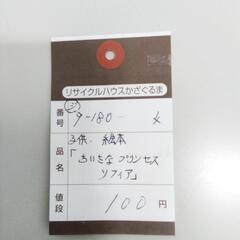 リサイクルハウスかざぐるま
番号 ③ 9-180
品名 子供. 絵本
「ちいさなプリンセス
ソフィア」
値段 100 円